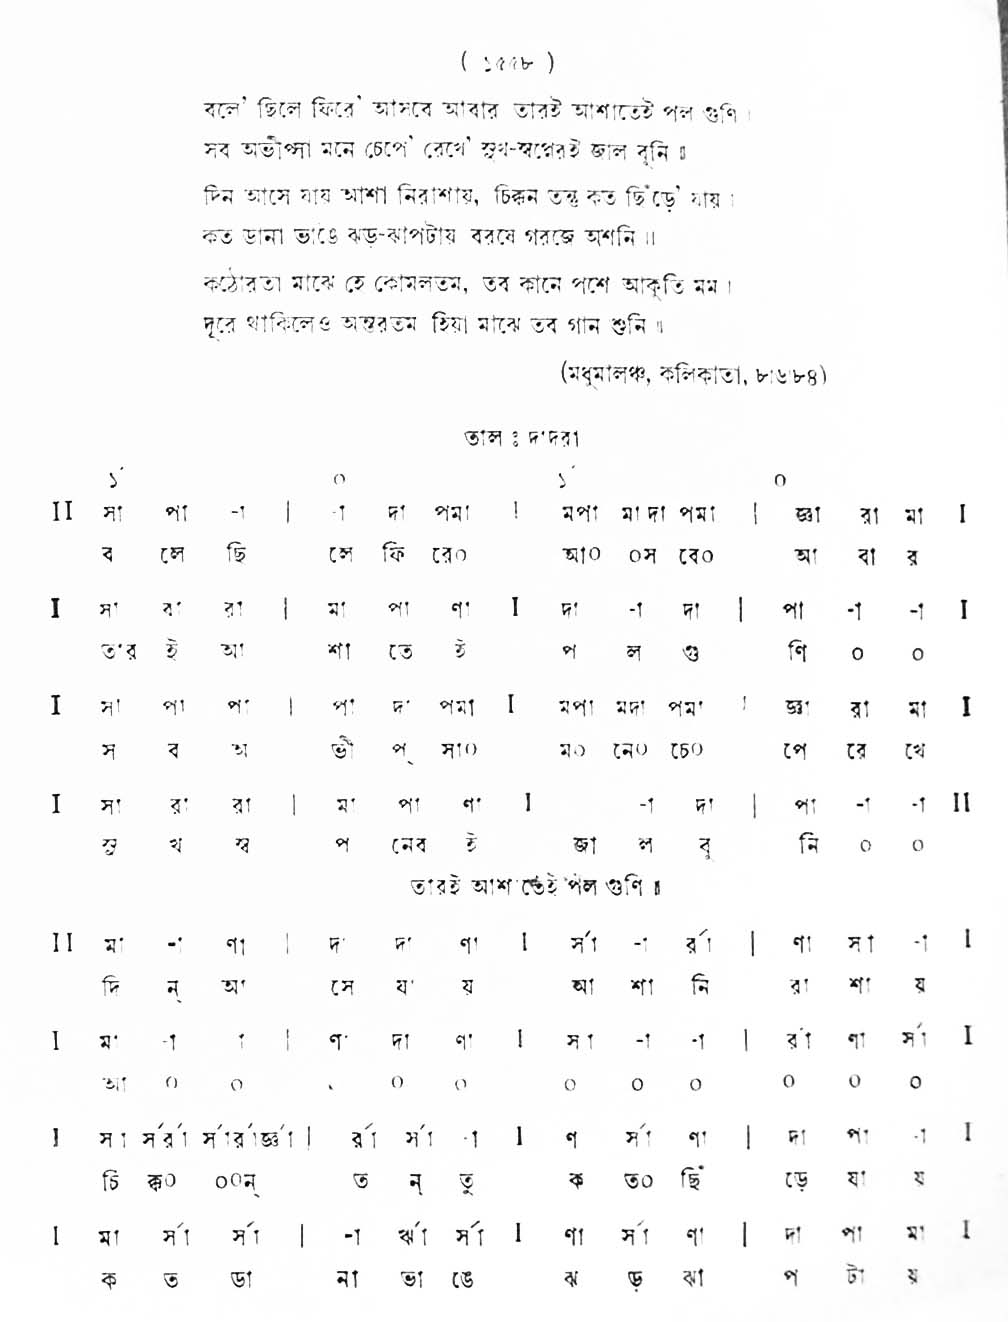 ( ১৫৫৮ )
বলে' ছিলে ফিরে' আসবে আবার তারই আশাতেই পল গুণি ৷
সব অভীপ্সা মনে চেপে' রেখে' সুখ-স্বপ্নেরই জাল বুনি ॥
দিন আসে যায় আশা নিরাশায়, চিক্কন তন্তু কত ছিঁড়ে' যায় ৷
কত ডানা ভাঙে ঝড়-ঝাপটায় বরষে গরজে অশনি ৷৷
কঠোরতা মাঝে হে কোমলতম, তব কানে পশে আকুতি মম ৷
দূরে থাকিলেও অন্তরতম হিয়া মাঝে তব গান শুনি ॥
(মধুমালঞ্চ, কলিকাতা, ৮৷৬৷৮৪)
তাল ঃ দাদরা
১´ ০ ১´ ০
II সা পা -া | -া দা পমা | মপা মাদা পমা | জ্ঞা রা মা I
ব লে ছি লে ফি রে০ আ০ ০স বে০ আ বা র
I সা রা রা | মা পা ণা I দা -া দা | পা -া -া I
তার ই আ শা তে ই প ল গু ণি ০ ০
I সা পা পা | পা দা পমা I মপা মদা পমা | জ্ঞা রা মা I
স ব অ ভী প্ সা০ ম০ নে০ চে০ পে রে খে
I সা রা রা | মা পা ণা I -া দা | পা -া -া II
সু খ স্ব প নেব ই জা ল বু নি ০ ০
তারই আশাতেই পল গুণি ॥
II মা -া ণা | দা দা ণা I র্সা -া র্রা | ণা সা -া I
দি ন্ আ সে যা য় আ শা নি রা শা য়
I মা -া া | ণা দা ণা I সা -া -া | র্রা ণা র্সা I
আ ০ ০ ০ ০ ০ ০ ০ ০ ০ ০
I সা র্সর্রা র্সার্রার্জ্ঞা | র্রা র্সা -া I ণ র্সা ণা | দা পা -া I
চি ক্ক০ ০০ন্ ত ন্ তু ক ত০ ছিঁ ড়ে যা য়
I মা র্সা র্সা | -া র্ঋা র্সা I ণা র্সা ণা | দা পা মা I
ক ত ডা না ভা ঙে ঝ ড় ঝা প টা য়